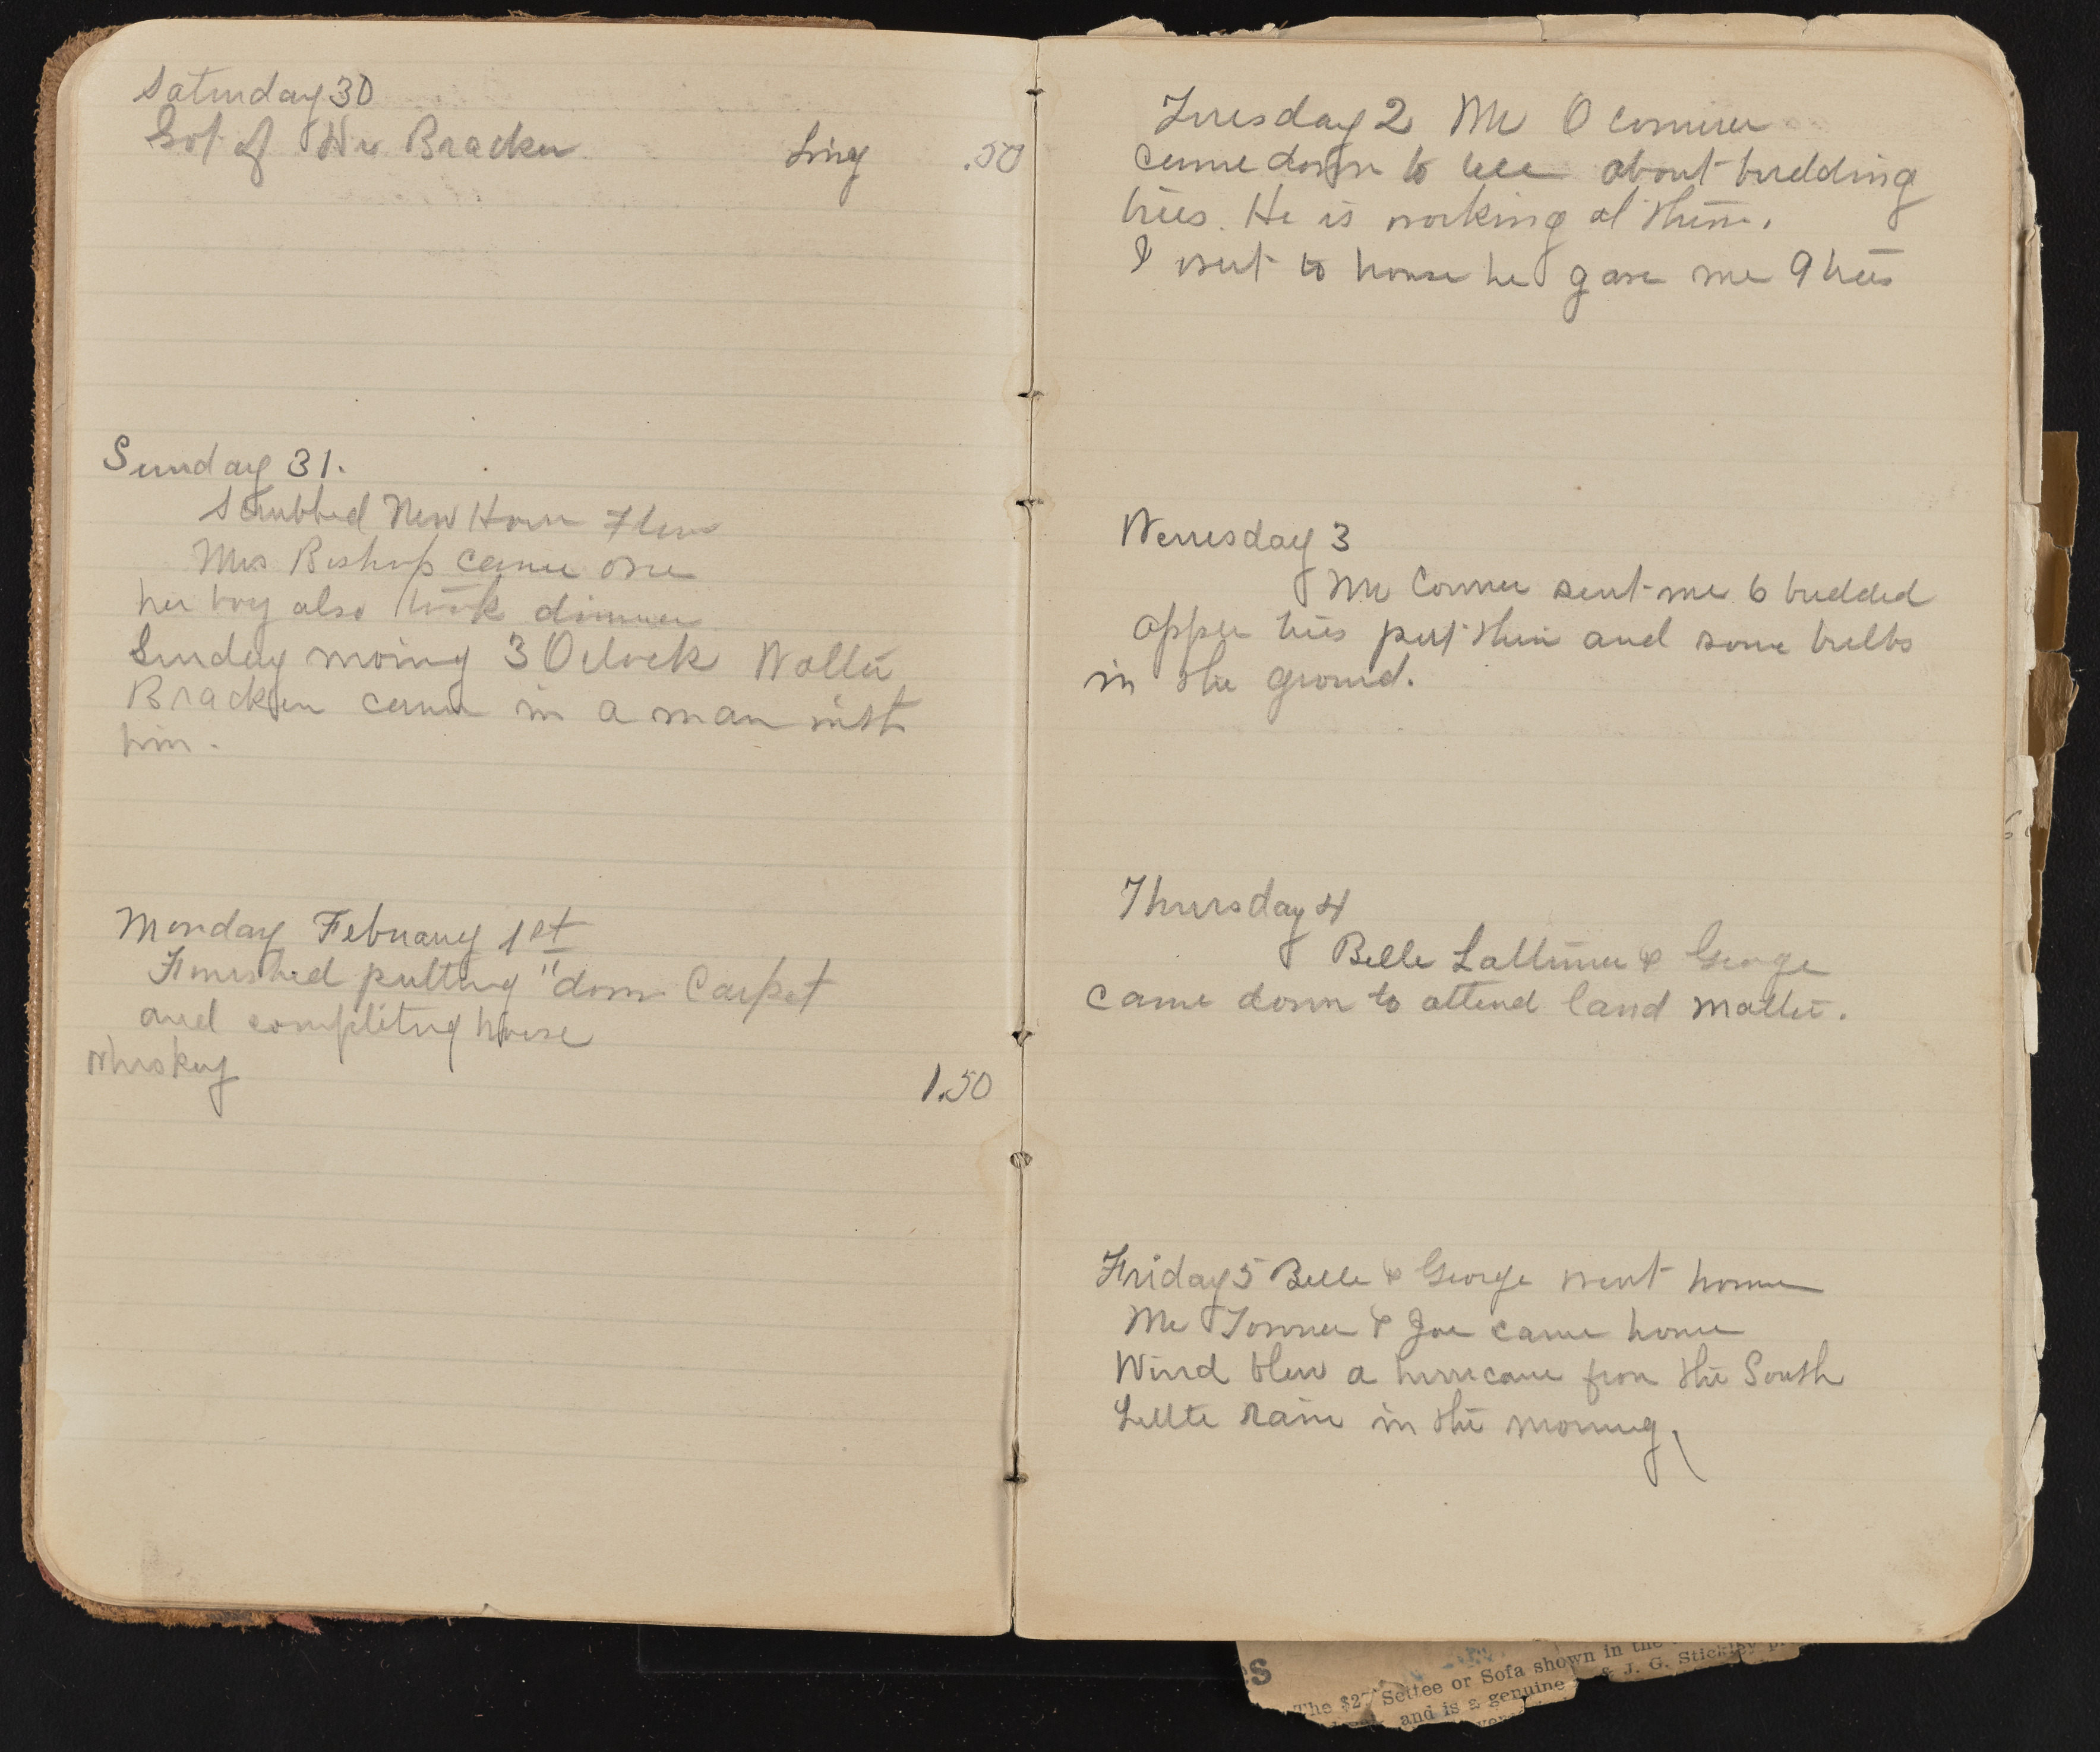 Saturday 30
Got of Bracken .50
Sunday 31.
Scrubbed New House Floor
Mrs Bishop came one
her boy also took dinner
Sunday moing 3 Oclock Walter
Bracken came in a man with
him.
Monday February 1st
Finished putting down Carpet
and completing house
Whiskey 1.50
Tuesday 2 Mr O Conner
came down to see about budding
trees. He is working at them.
I went to house he gave me 9 trees
Wenesday 3
Mr Conner sent me 6 budded
trees put them and some bulbs
in the ground.
Thursday 4
Belle Lattimer & George
came down to attend land matter.
Friday 5 Belle & George went home
Mr & Joe came home
Wind blew a hurricane from the South
Little rain in the morning
The $27 Settee or Sofa shown in the
& J. G. Stickley
and is a genuine